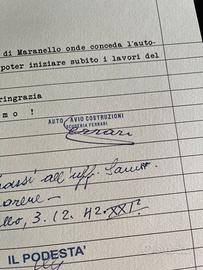 di Maranello onde conceda l'auto-
poter iniziare subito i lavori del
ringrazia
mo !
AUTO AVIO COSTRUZIONI
SCUDERIA FERRARI
Ferrari
all'uff.
3. 12. 42. XXI°
IL PODESTA'